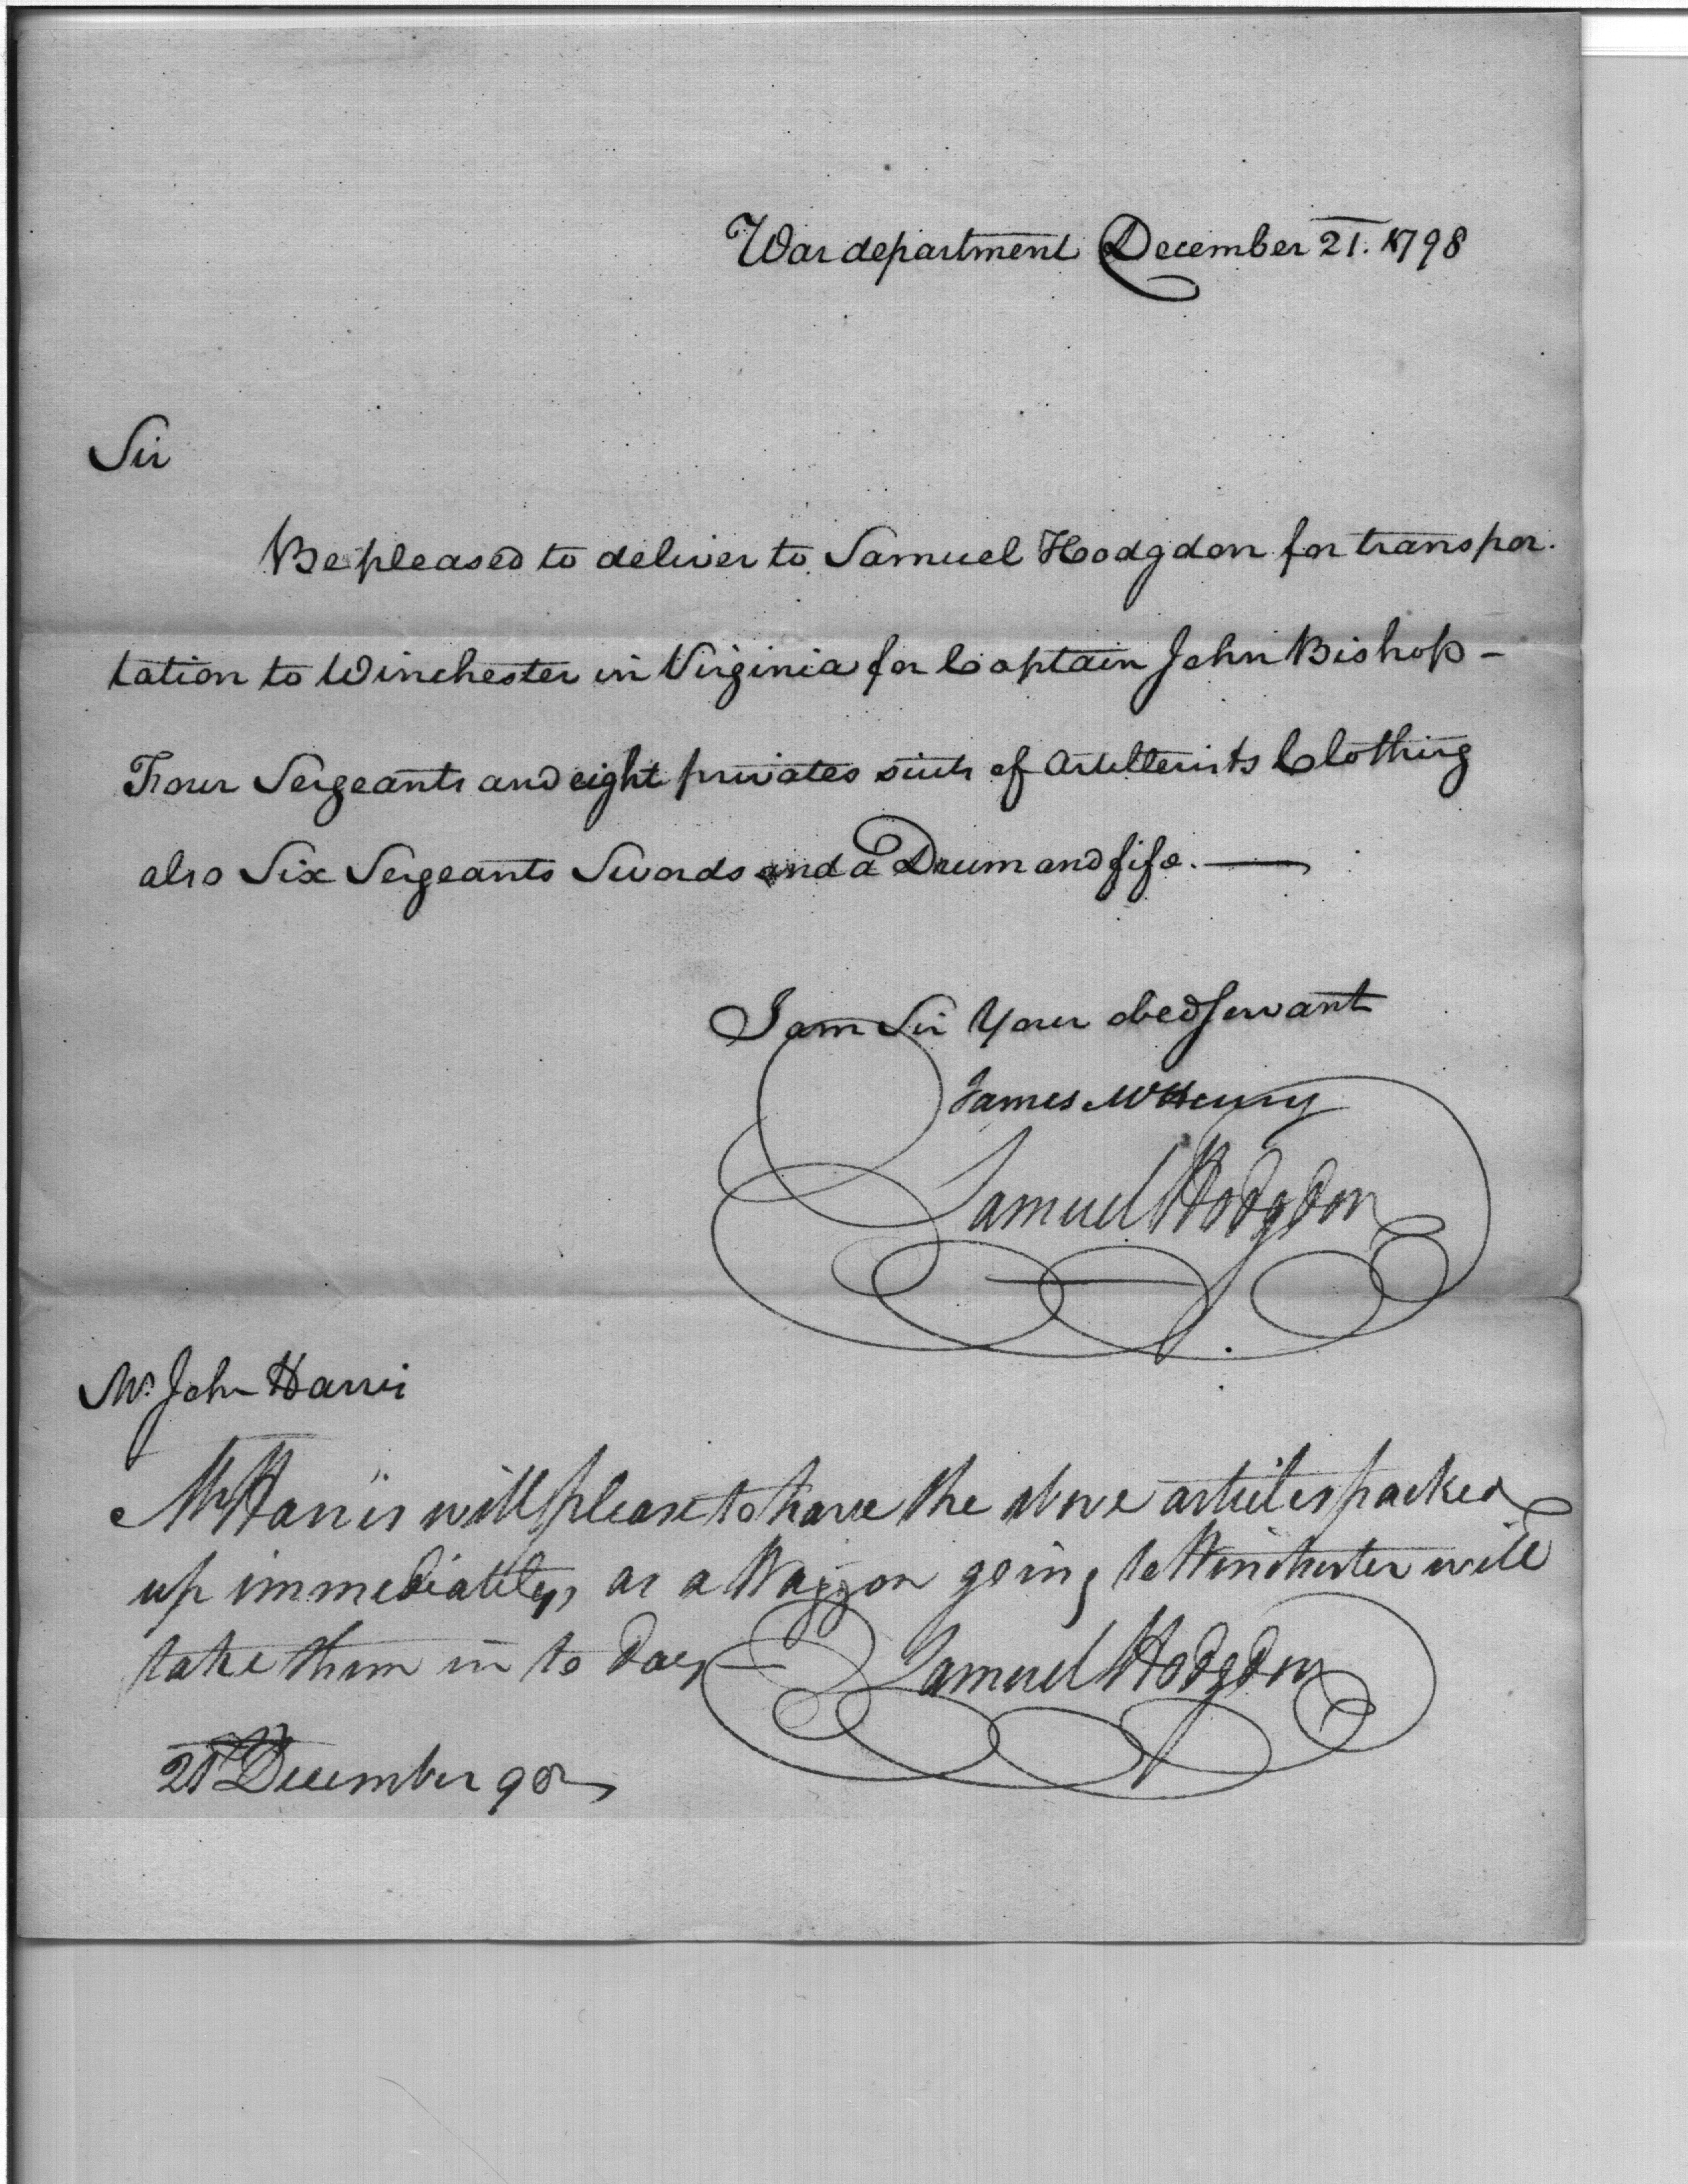 War department December 21. 1798
Sir
Be pleased to deliver to Samuel Hodgdon for transpor-
tation to Winchester in Virginia for Captain John Bishop -
Four Sergeants and eight privates suits of Artillerists Clothing
also Six Sergeants Swords and a Drum and fife. —
I am Sir Your obed Servant
James McHenry
Samuel Hodgdon
Mr. John Harris
Mr Harris will please to have the above articles packed
up immediately, as a Waggon going to Winchester will
take them in to day — Samuel Hodgdon
21st December 98